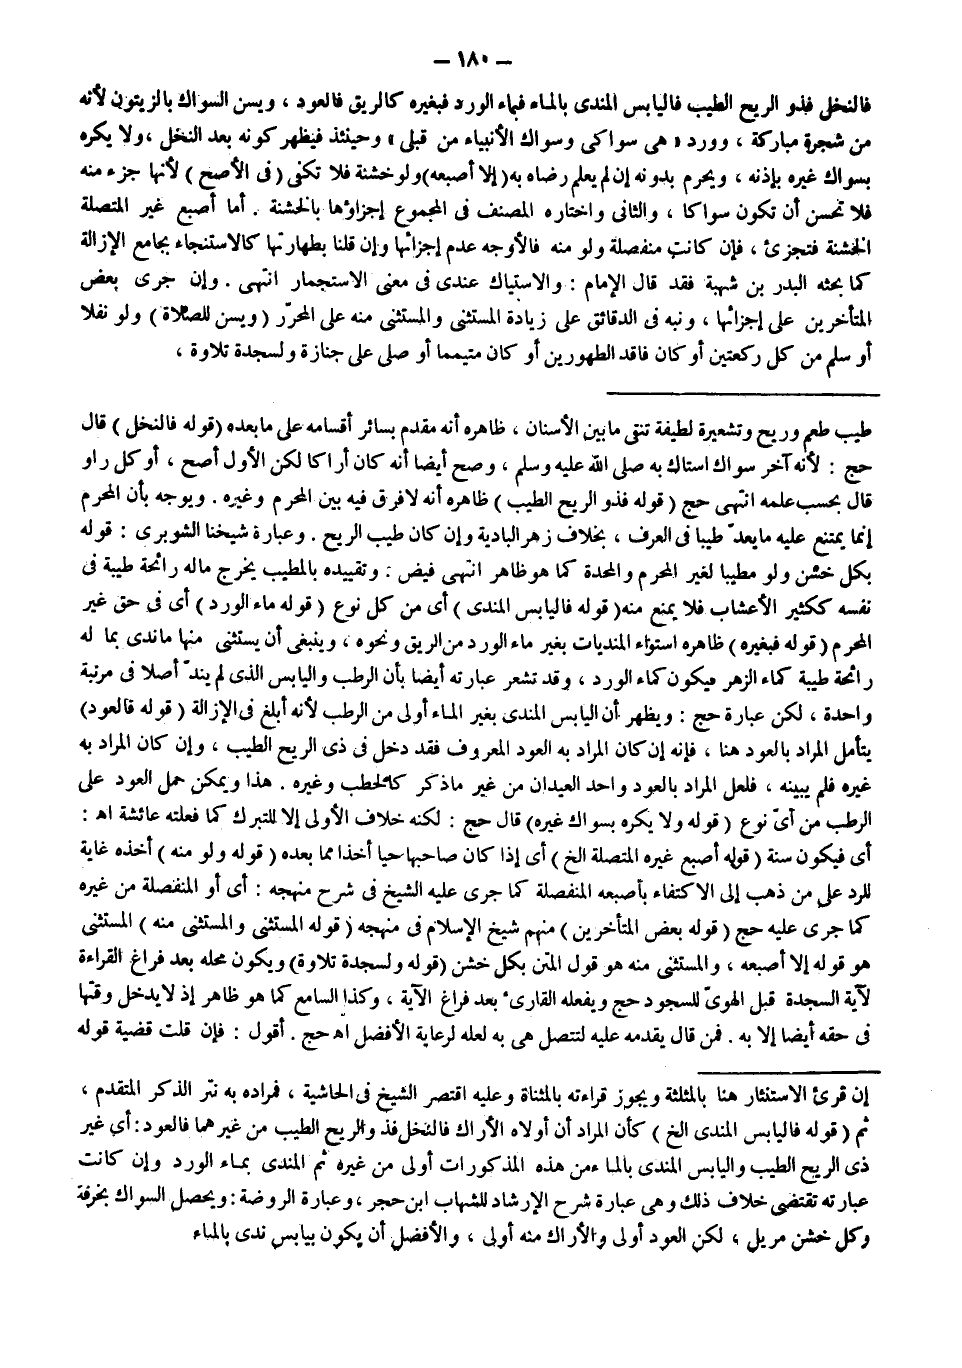 – ١٨٠ –
فالنخل فذو الريح الطيب فاليابس المندى بالماء فبماء الورد فبغيره كالريق فالعود ، ويسن السواك بالزيتون لأنه
من شجرة مباركة ، وورد « هى سواكى وسواك الأنبياء من قبلى » وحينئذ فيظهر كونه بعد النخل ، ولا يكره
بسواك غيره بإذنه ، ويحرم بدونه إن لم يعلم رضاه به ( إلا أصبعه ) ولو خشنة فلا تكفى ( فى الأصح ) لأنها جزء منه
فلا تحسن أن تكون سواكا ، والثانى واختاره المصنف فى المجموع إجزاؤها بالخشنة . أما أصبع غير المتصلة
الخشنة فتجزئ ، فإن كانت منفصلة ولو منه فالأوجه عدم إجزائها وإن قلنا بطهارتها كالاستنجاء بجامع الإزالة
كما بحثه البدر بن شهبة فقد قال الإمام : والاستياك عندى فى معنى الاستجمار انتهى . وإن جرى بعض
المتأخرين على إجزائها ، ونبه فى الدقائق على زيادة المستثنى والمستثنى منه على المحرّر ( ويسن للصلاة ) ولو نفلا
أو سلم من كل ركعتين أو كان فاقد الطهورين أو كان متيمما أو صلى على جنازة ولسجدة تلاوة ،
طيب طعم وريح وتشعيرة لطيفة تنقى ما بين الأسنان ، ظاهره أنه مقدم بسائر أقسامه على مابعده ( قوله فالنخل ) قال
حج : لأنه آخر سواك استاك به صلى الله عليه وسلم ، وصح أيضا أنه كان أراكا لكن الأول أصح ، أو كل راو
قال بحسب علمه انتهى حج ( قوله فذو الريح الطيب ) ظاهره أنه لافرق فيه بين المحرم وغيره . ويوجه بأن المحرم
إنما يمتنع عليه مايعدّ طيبا فى العرف ، بخلاف زهر البادية وإن كان طيب الريح . وعبارة شيخنا الشوبرى : قوله
بكل خشن ولو مطيبا لغير المحرم والمحدة كما هو ظاهر انتهى فيض : وتقييده بالمطيب يخرج ماله رائحة طيبة فى
نفسه ككثير الأعشاب فلا يمنع منه ( قوله فاليابس المندى ) أى من كل نوع ( قوله ماء الورد ) أى فى حق غير
المحرم ( قوله فبغيره ) ظاهره استواء المنديات بغير ماء الورد من الريق ونحوه ، وينبغى أن يستثنى منها ماندى بما له
رائحة طيبة كماء الزهر فيكون كماء الورد ، وقد تشعر عبارته أيضا بأن الرطب واليابس الذى لم يندّ أصلا فى مرتبة
واحدة ، لكن عبارة حج : ويظهر أن اليابس المندى بغير الماء أولى من الرطب لأنه أبلغ فى الإزالة ( قوله فالعود )
يتأمل المراد بالعود هنا ، فإنه إن كان المراد به العود المعروف فقد دخل فى ذى الريح الطيب ، وإن كان المراد به
غيره فلم يبينه ، فلعل المراد بالعود واحد العيدان من غير ماذكر كالحطب وغيره . هذا ويمكن حمل العود على
الرطب من أىّ نوع ( قوله ولا يكره بسواك غيره ) قال حج : لكنه خلاف الأولى إلا للتبرك كما فعلته عائشة اه :
أى فيكون سنة ( قوله أصبع غيره المتصلة الخ ) أى إذا كان صاحبها حيا أخذا مما بعده ( قوله ولو منه ) أخذه غاية
للرد على من ذهب إلى الاكتفاء بأصبعه المنفصلة كما جرى عليه الشيخ فى شرح منهجه : أى أو المنفصلة من غيره
كما جرى عليه حج ( قوله بعض المتأخرين ) منهم شيخ الإسلام فى منهجه ( قوله المستثنى والمستثنى منه ) المستثنى
هو قوله إلا أصبعه ، والمستثنى منه هو قول المتن بكل خشن ( قوله ولسجدة تلاوة ) ويكون محله بعد فراغ القراءة
لآية السجدة قبل الهوىّ للسجود حج ويفعله القارئ بعد فراغ الآية ، وكذا السامع كما هو ظاهر إذ لايدخل وقتها
فى حقه أيضا إلا به . فمن قال يقدمه عليه لتتصل هى به لعله لرعاية الأفضل اه حج . أقول : فإن قلت قضية قوله
إن قرئ الاستنثار هنا بالمثلثة ويجوز قراءته بالمثناة وعليه اقتصر الشيخ فى الحاشية ، فمراده به نتر الذكر المتقدم ،
ثم ( قوله فاليابس المندى الخ ) كأن المراد أن أولاه الأراك فالنخل فذ والريح الطيب من غيرهما فالعود : أى غير
ذى الريح الطيب واليابس المندى بالماء من هذه المذكورات أولى من غيره ثم المندى بماء الورد وإن كانت
عبارته تقتضى خلاف ذلك وهى عبارة شرح الإرشاد للشهاب ابن حجر ، وعبارة الروضة : ويحصل السواك بخرقة
وكل خشن مزيل ، لكن العود أولى والأراك منه أولى ، والأفضل أن يكون بيابس ندى بالماء